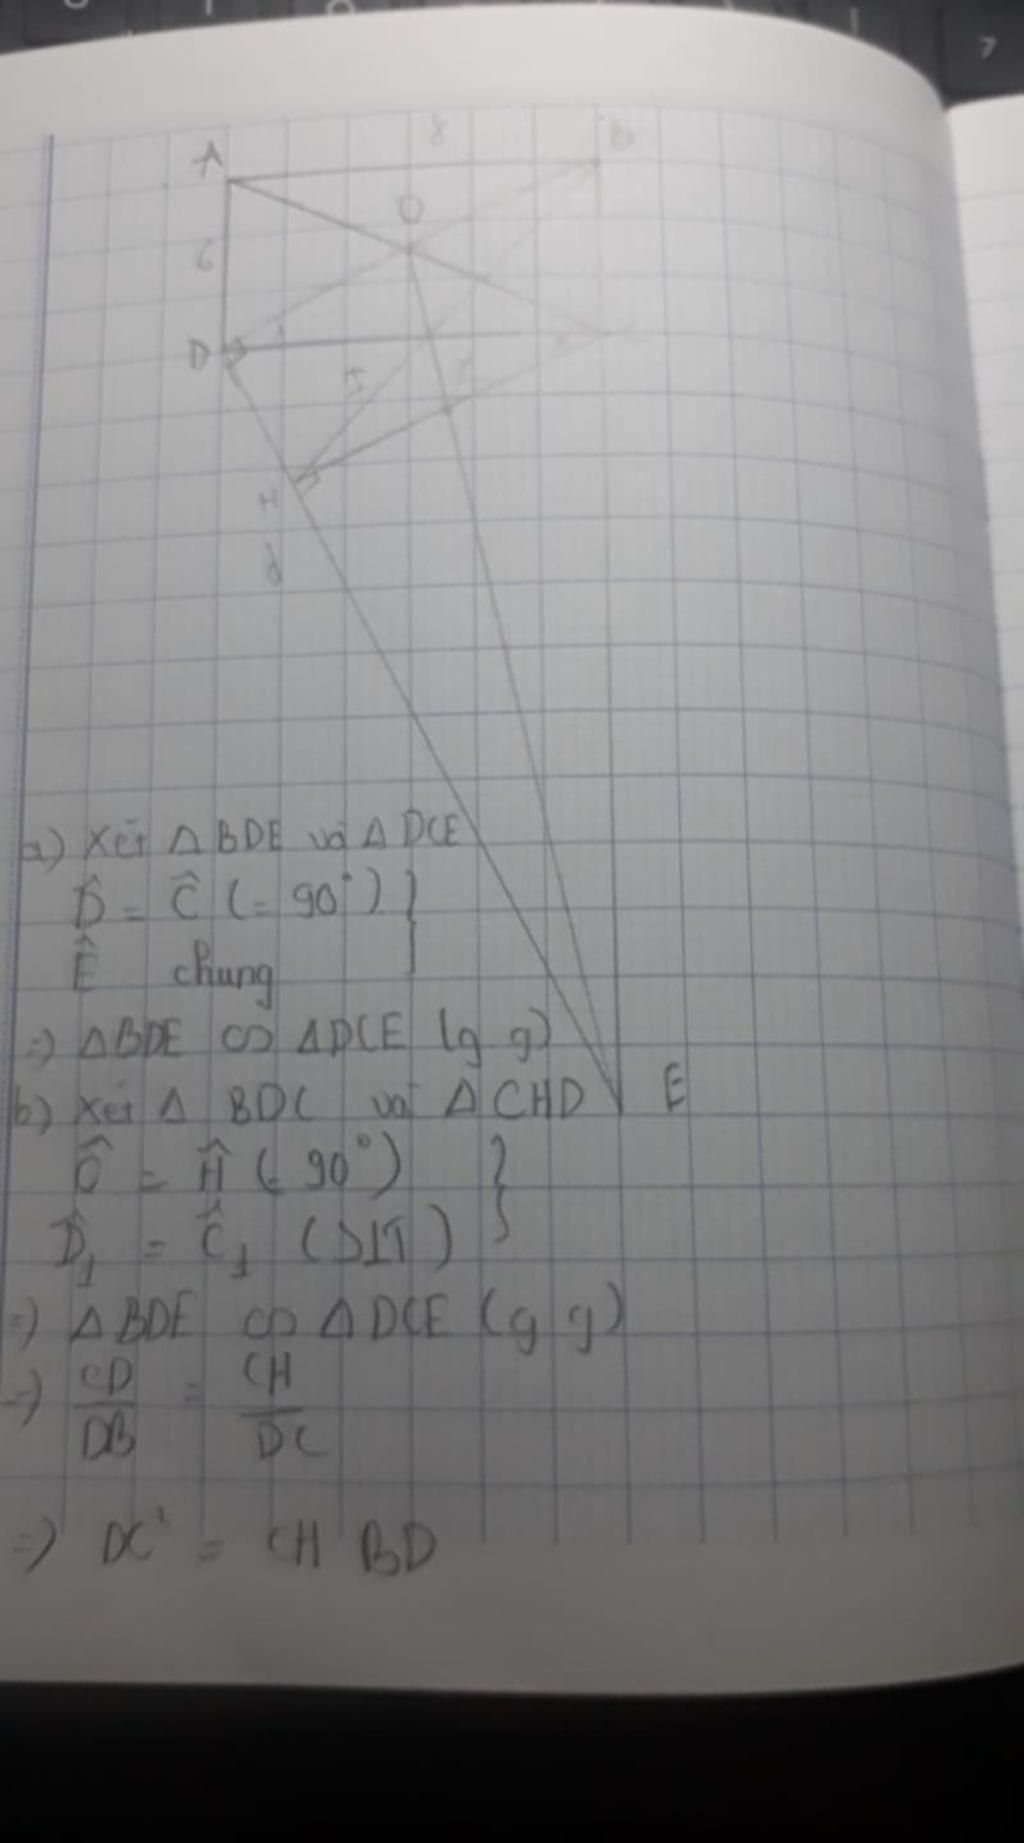 A
8
B
O
6
D
1
I
H
d
a) Xét Δ BDE và Δ DCE
D̂ = Ĉ (= 90°) }
Ê chung
=) ΔBDE ∽ ΔDCE (g g)
E
b) Xét Δ BDC và Δ CHD
Ĉ = Ĥ (= 90°) }
D̂₁ = Ĉ₁ (SLT)
=) Δ BDE ∽ Δ DCE (g g)
=) CD/DB = CH/DC
=) DC² = CH BD